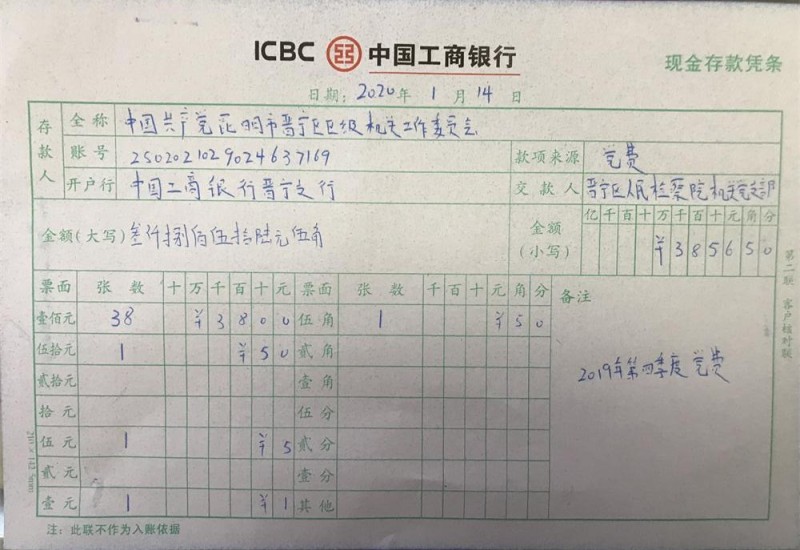 ICBC 中国工商银行
现金存款凭条
日期: 2020 年 1 月 14 日
存款人
全称 中国共产党昆明市晋宁区区级机关工作委员会
账号 2502021029024637169
款项来源 党费
开户行 中国工商银行晋宁支行
交款人 晋宁区人民检察院机关党支部
金额(大写) 叁仟捌佰伍拾陆元伍角
金额(小写)
亿 千 百 十 万 千 百 十 元 角 分
¥ 3 8 5 6 5 0
票面 张数 十 万 千 百 十 元 票面 张数 千 百 十 元 角 分
备注
壹佰元 38 ¥ 3 8 0 0 伍角 1 ¥ 5 0
伍拾元 1 ¥ 5 0 贰角
贰拾元 壹角
2019年第四季度党费
拾元 伍分
伍元 1 ¥ 5 贰分
贰元 壹分
壹元 1 ¥ 1 其他
注: 此联不作为入账依据
第二联 客户核对联